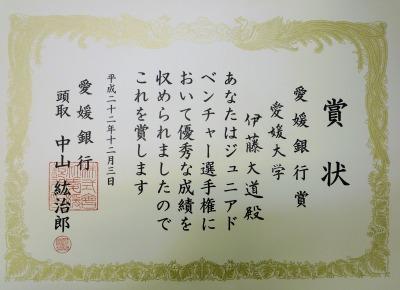 賞状
愛媛銀行賞
愛媛大学
伊藤大道殿
あなたはジュニアド
ベンチャー選手権に
おいて優秀な成績を
収められましたので
これを賞します
平成二十二年十二月三日
愛媛銀行
頭取 中山紘治郎